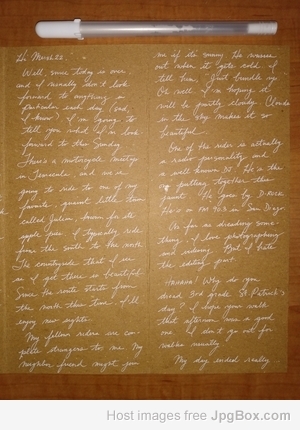 Hi Moshes...
Well, since today is over
and I usually don't look
forward to anything in
particular each day (and,
I know) I'm going to
tell you what I'm look
forward to this Sunday.
There's a motorcycle meetup
in Temecula, and we're
going to ride to one of my
favorite, quaint little town
called Julian, known for its
apple pies. I typically ride
from the south to the north.
The countryside that I see
as I get there is beautiful.
Since the route starts from
the north this time, I'll
enjoy new sights.
My fellow riders are com-
plete strangers to me. My
neighbor friend might join
me if it's sunny. He wusses
out when it gets cold. I
tell him, Just bundle up.
Oh well. I'm hoping it
will be partly cloudy. Clouds
in the sky makes it so
beautiful.
One of the riders is actually
a radio personality and
well known DJ. He is the
putting together this
He goes by D-Rock
He's on FM 90.3 in San Diego.
As far as dreading some-
thing, I love photographing
and videoing. But I hate
the editing part.
Hahaha! Why do you
dread 3rd grade St. Patrick's
day? I hope your walk
that afternoon was a good
one. I don't go out for
walks usually.
My day ended really
Host images free JpgBox.com